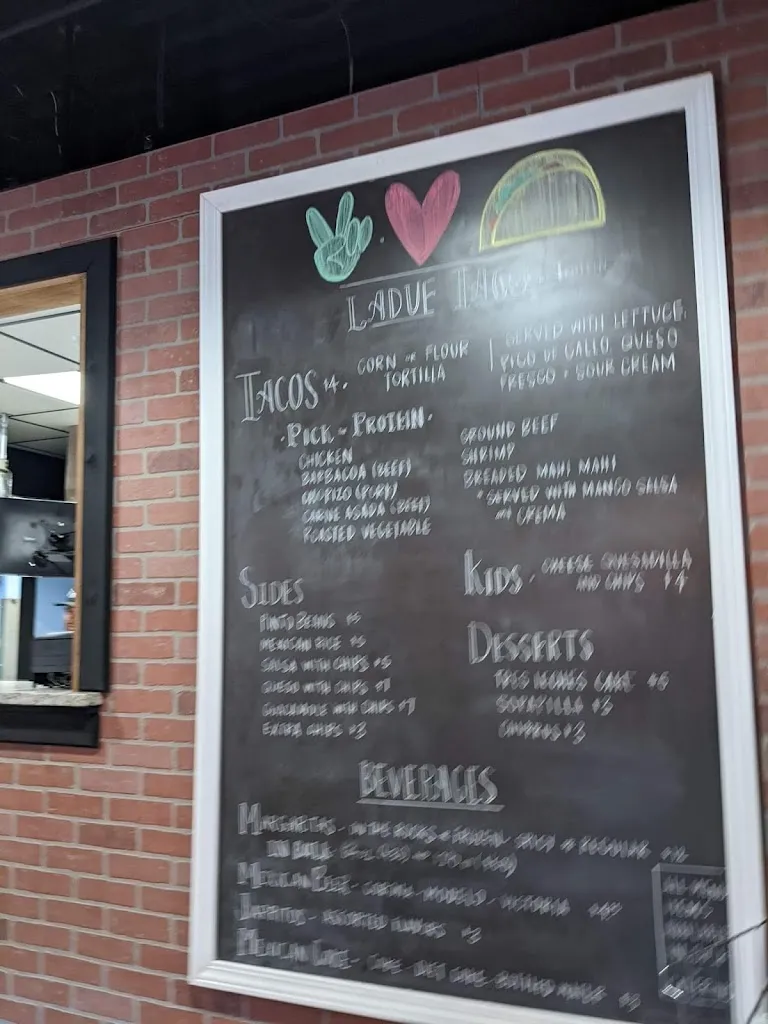 LADUE TACO
TACOS $4.
CORN OR FLOUR
TORTILLA
SERVED WITH LETTUCE
PICO DE GALLO QUESO
FRESCO + SOUR CREAM
· PICK A PROTEIN ·
CHICKEN
BARBACOA (BEEF)
CHORIZO (PORK)
CARNE ASADA (BEEF)
ROASTED VEGETABLE
GROUND BEEF
SHRIMP
BREADED MAHI MAHI
* SERVED WITH MANGO SALSA
AND CREMA
SIDES
PINTO BEANS $5
MEXICAN RICE $5
SALSA WITH CHIPS $5
QUESO WITH CHIPS $7
GUACAMOLE WITH CHIPS $7
EXTRA CHIPS $3
KIDS - CHEESE QUESADILLA
AND CHIPS $4
DESSERTS
TRES LECHES CAKE $6
SOPAPILLA $3
CHURROS $3
BEVERAGES
MARGARITAS - ON THE ROCKS OR FROZEN - SPICY OR REGULAR
MEXICAN BEER - CORONA - MODELO - VICTORIA
JARRITOS - ASSORTED FLAVORS $3
MEXICAN COKE - COKE - DIET COKE - BOTTLED WATER $3